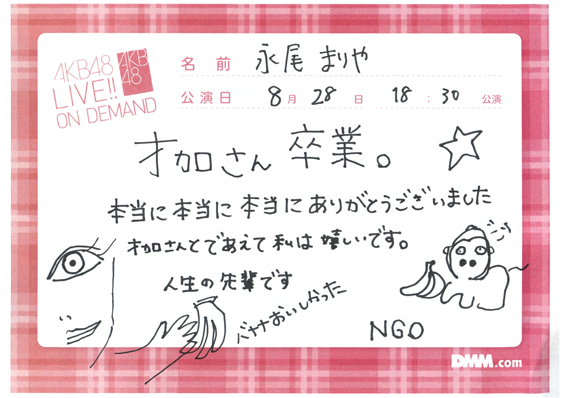 AKB48
LIVE!!
ON DEMAND
AKB
48
名前 永尾 まりや
公演日 8月 28日 18:30 公演
才加さん 卒業。
本当に 本当に 本当に ありがとうございました
才加さんとであえて 私は 嬉しいです。
人生の 先輩です
バナナおいしかった
NGO
DMM.com